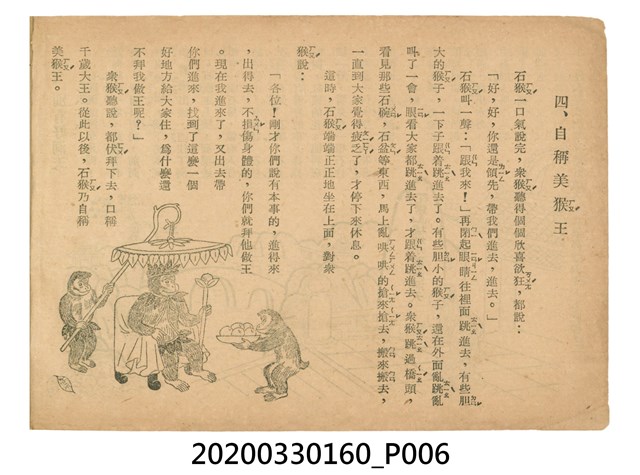 四、自稱美猴王
石猴一口氣說完，衆猴聽得個個欣喜欲狂，都說：
「好，好，你還是領先，帶我們進去，進去。」
石猴叫一聲：「跟我來！」再閉起眼睛往裡面跳進去，有些胆
大的猴子，一下子跟着跳進去了。有些胆小的猴子，還在外面亂跳亂
叫了一會，眼看大家都跳進去了，才跟着跳進去。衆猴跳過橋頭，
看見那些石碗，石盆等東西，馬上亂哄哄的搶來搶去，搬來搬去，
一直到大家覺得疲乏了，才停下來休息。
這時，石猴端端正正地坐在上面，對衆
猴說：
「各位！剛才你們說有本事的，進得來
，出得去，不損傷身體的，你們就拜他做王
。現在我進來了，又出去帶
你們進來，找到了這麼一個
好地方給大家住，爲什麼還
不拜我做王呢？」
衆猴聽說，都伏拜下去，口稱
千歲大王。從此以後，石猴乃自稱
美猴王。
20200330160_P006